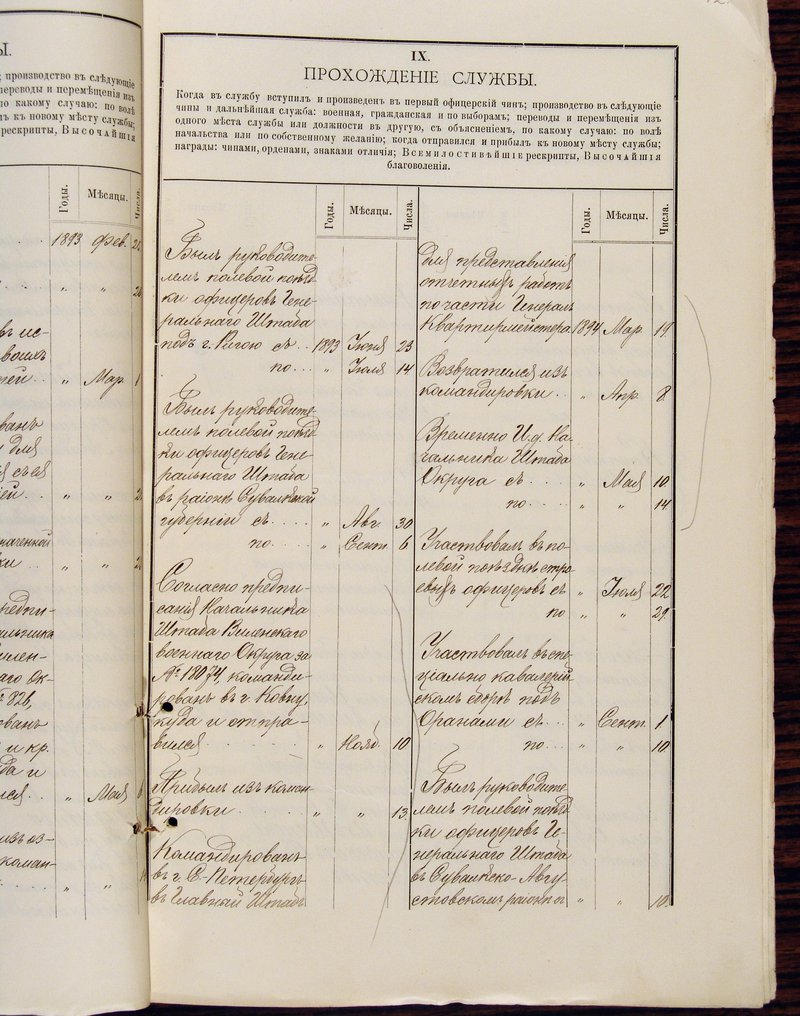 Ы.
; производство въ слѣдующіе
переводы и перемѣщенія изъ
по какому случаю: по волѣ
ъ къ новому мѣсту службы;
рескрипты, Высочайшія
Годы.
Мѣсяцы.
Числа.
1893 Фев.
" "
въ ис-
воихъ
" Мар. 1
" "
" "
№ 826,
и кр.
" Мая
" "
IX.
ПРОХОЖДЕНІЕ СЛУЖБЫ.
Когда въ службу вступилъ и произведенъ въ первый офицерскій чинъ; производство въ слѣдующіе
чины и дальнѣйшая служба: военная, гражданская и по выборамъ; переводы и перемѣщенія изъ
одного мѣста службы или должности въ другую, съ объясненіемъ, по какому случаю: по волѣ
начальства или по собственному желанію; когда отправился и прибылъ къ новому мѣсту службы;
награды: чинами, орденами, знаками отличія; Всемилостивѣйшіе рескрипты, Высочайшія
благоволенія.
Годы.
Мѣсяцы.
Числа.
Былъ руководите-
лемъ полевой поѣзд-
ки офицеровъ Гене-
ральнаго Штаба
подъ г. Ригою съ . . 1893 Іюня 23
по . . . " Іюля 14
Былъ руководите-
лемъ полевой поѣзд-
ки офицеровъ Гене-
ральнаго Штаба
въ районѣ Сувалкской
губерніи съ . . . . . " Авг. 30
по . . . . . " Сент. 6
Согласно предпи-
санія Начальника
Штаба Виленскаго
военнаго Округа за
№ 18074, команди-
рованъ въ г. Ковну,
куда и отпра-
вился . . . . . . " Нояб. 10
Прибылъ изъ коман-
дировки . . . . . " " 13.
Командированъ
въ г. С.-Петербургъ
въ Главный Штабъ
Годы.
Мѣсяцы.
Числа.
для представленія
отчетныхъ работъ
по части Генералъ
Квартирмейстера 1894 Мар. 19.
Возвратился изъ
командировки . . " Апр. 8.
Временно И.д. На-
чальника Штаба
Округа съ . . . . " Мая 10
по . . . . " " 14.
Участвовалъ въ по-
левой поѣздкѣ стро-
евыхъ офицеровъ съ " Іюля 22
по " " 29.
Участвовалъ въ спе-
ціально кавалерій-
скомъ сборѣ подъ
Оранами съ . . . " Сент. 1
по . . . " " 10
Былъ руководите-
лемъ полевой поѣзд-
ки офицеровъ Ге-
неральнаго Штаба
въ Сувалкско-Авгу-
стовскомъ районѣ съ " " 10.